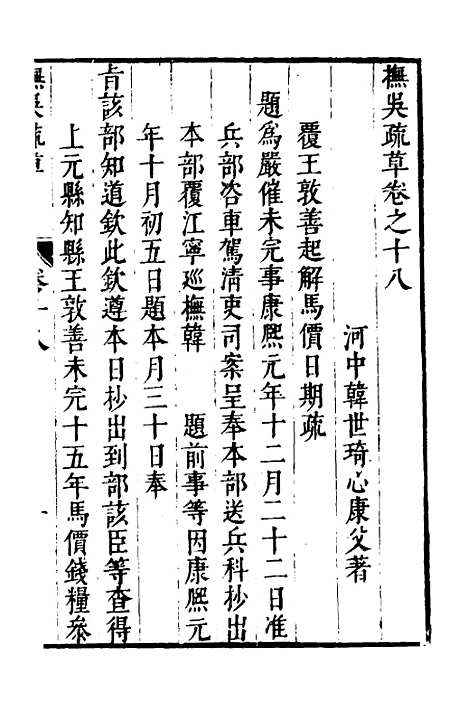 撫吳疏草卷之十八
河中韓世琦心康父著
覆王敦善起解馬價日期疏
題爲嚴催未完事康熙元年十二月二十二日准
兵部咨車駕清吏司案呈奉本部送兵科抄出
本部覆江寧巡撫韓　題前事等因康熙元
年十月初五日題本月三十日奉
旨該部知道欽此欽遵本日抄出到部該臣等查得
上元縣知縣王敦善未完十五年馬價錢糧叅
撫吳疏草
卷十八
一